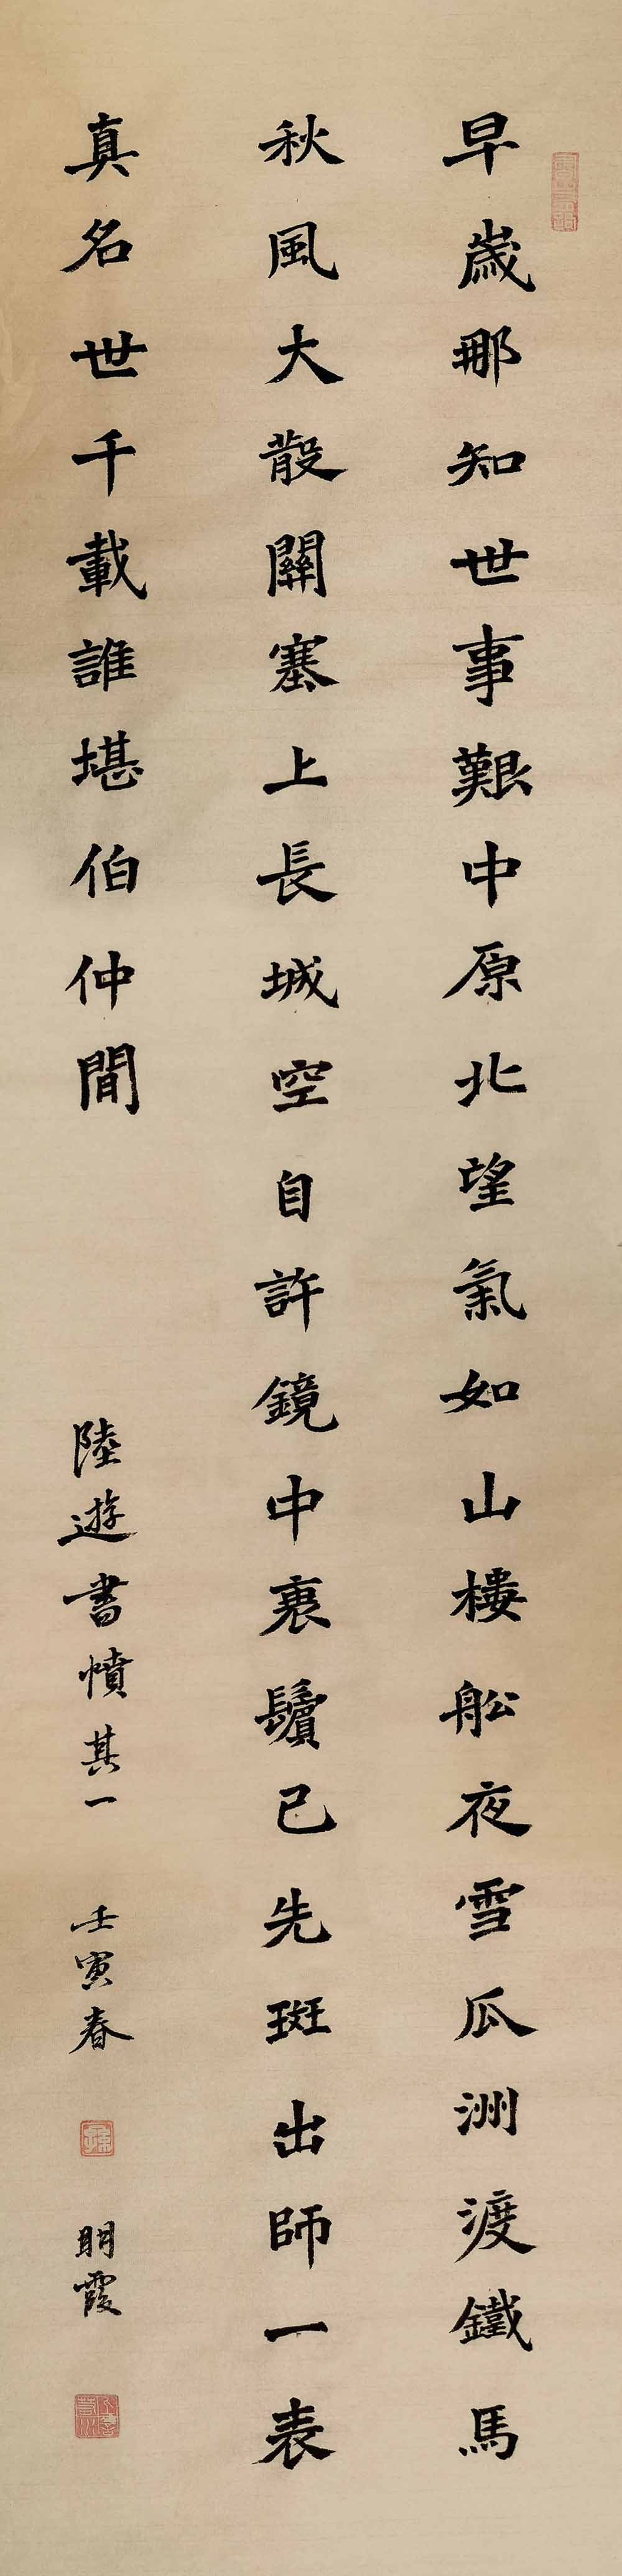 早歲那知世事艱中原北望氣如山樓船夜雪瓜洲渡鐵馬
秋風大散關塞上長城空自許鏡中衰鬢已先斑出師一表
真名世千載誰堪伯仲間
陸遊書憤其一 壬寅春
明霞